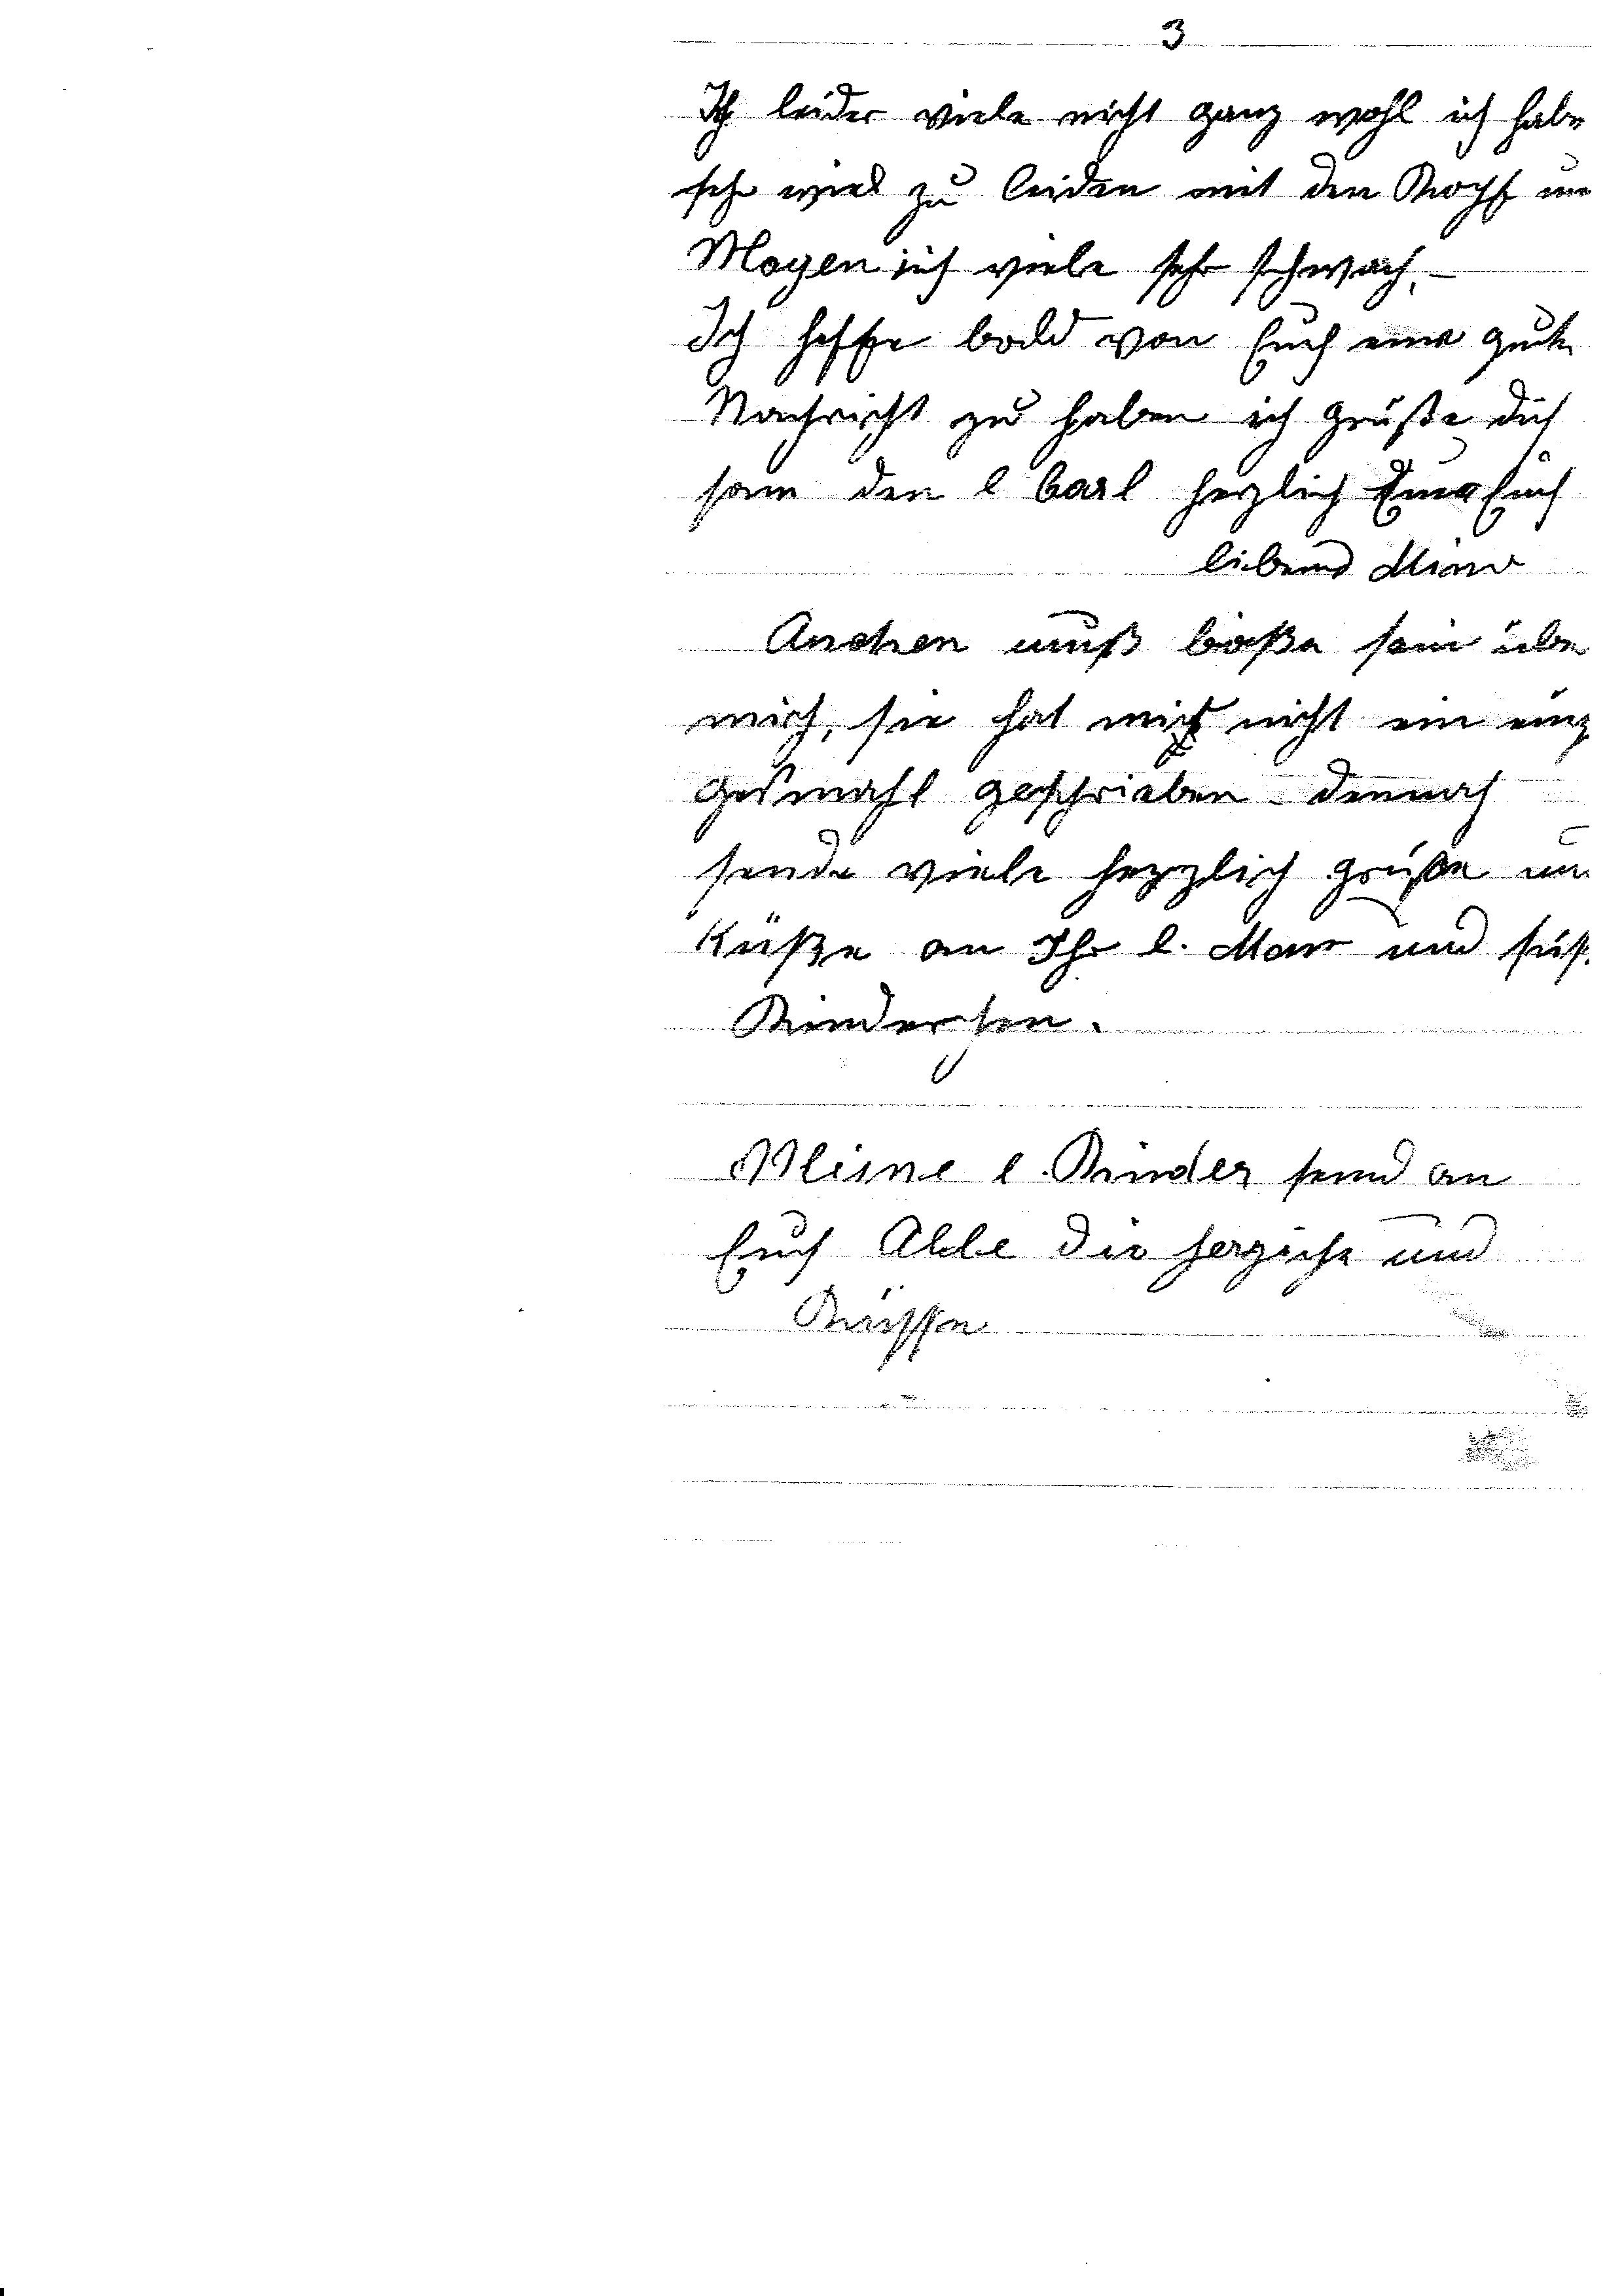 3
Ich leider viele nicht ganz wohl ich habe
sehr viel zu leiden mit den Kopf un
Magen ich viele sehr schwach. –
Ich hoffe bald von Euch eine gute
Nachricht zu haben ich grüße dich
sam den l Carl herzlich Eure Euch
libend Mina
Anchen muß boße sein über
mich, sie hat mich nicht ein einz
gesmahl geschrieben – dennoch
sende viele herzlich grüße un
Küße an Ihr l. Man und süß.
Kinderchen.
Meine l. Kinder send an
Euch Alle die und
Küssen